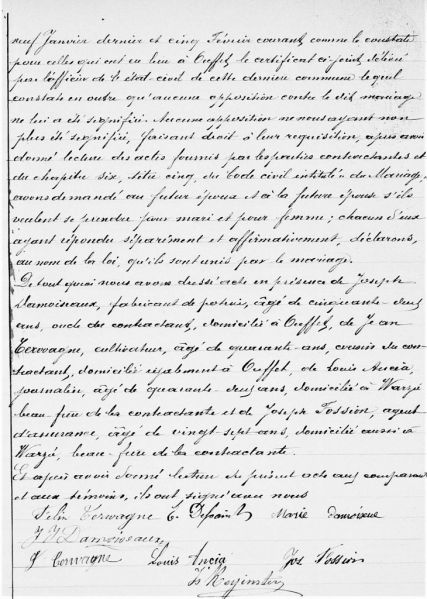 neuf Janvier dernier et cinq Février courant, comme le constate
pour celles qui ont eu lieu à Ouffet, le certificat ci-joint, délivré
par l'officier de l'état civil de cette dernière commune lequel
constate en outre qu'aucune opposition contre le dit mariage
ne lui a été signifiée. Aucune opposition ne nous ayant non
plus été signifiée, faisant droit à leur requisition, après avoir
donné lecture des actes fournis par les parties contractantes et
du chapitre six, titre cinq, du Code civil intitulé du Mariage,
avons demandé au futur époux et à la future épouse s'ils
veulent se prendre pour mari et pour femme; chacun d'eux
ayant répondu séparément et affirmativement, déclarons,
au nom de la loi, qu'ils sont unis par le mariage.
De tout quoi nous avons dressé acte en présence de Joseph
Damoiseaux, fabricant de poterie, âgé de cinquante-deux
ans, oncle du contractant, domicilié à Ouffet, de Jean
Terwagne, cultivateur, âgé de quarante-ans, cousin du con-
tractant, domicilié également à Ouffet, de Louis Ancia,
journalier, âgé de quarante-deux ans, domicilié à Warzé
beau-frère de la contractante et de Joseph Fossion, agent
d'assurance, âgé de vingt-sept ans, domicilié aussi à
Warzé, beau-frère de la contractante.
Et après avoir donné lecture du présent acte aux comparants
et aux témoins, ils ont signé avec nous
Félix Terwagne Marie Damoiseau
J J Damoiseaux
J Terwagne Louis Ancia Jos Fossion